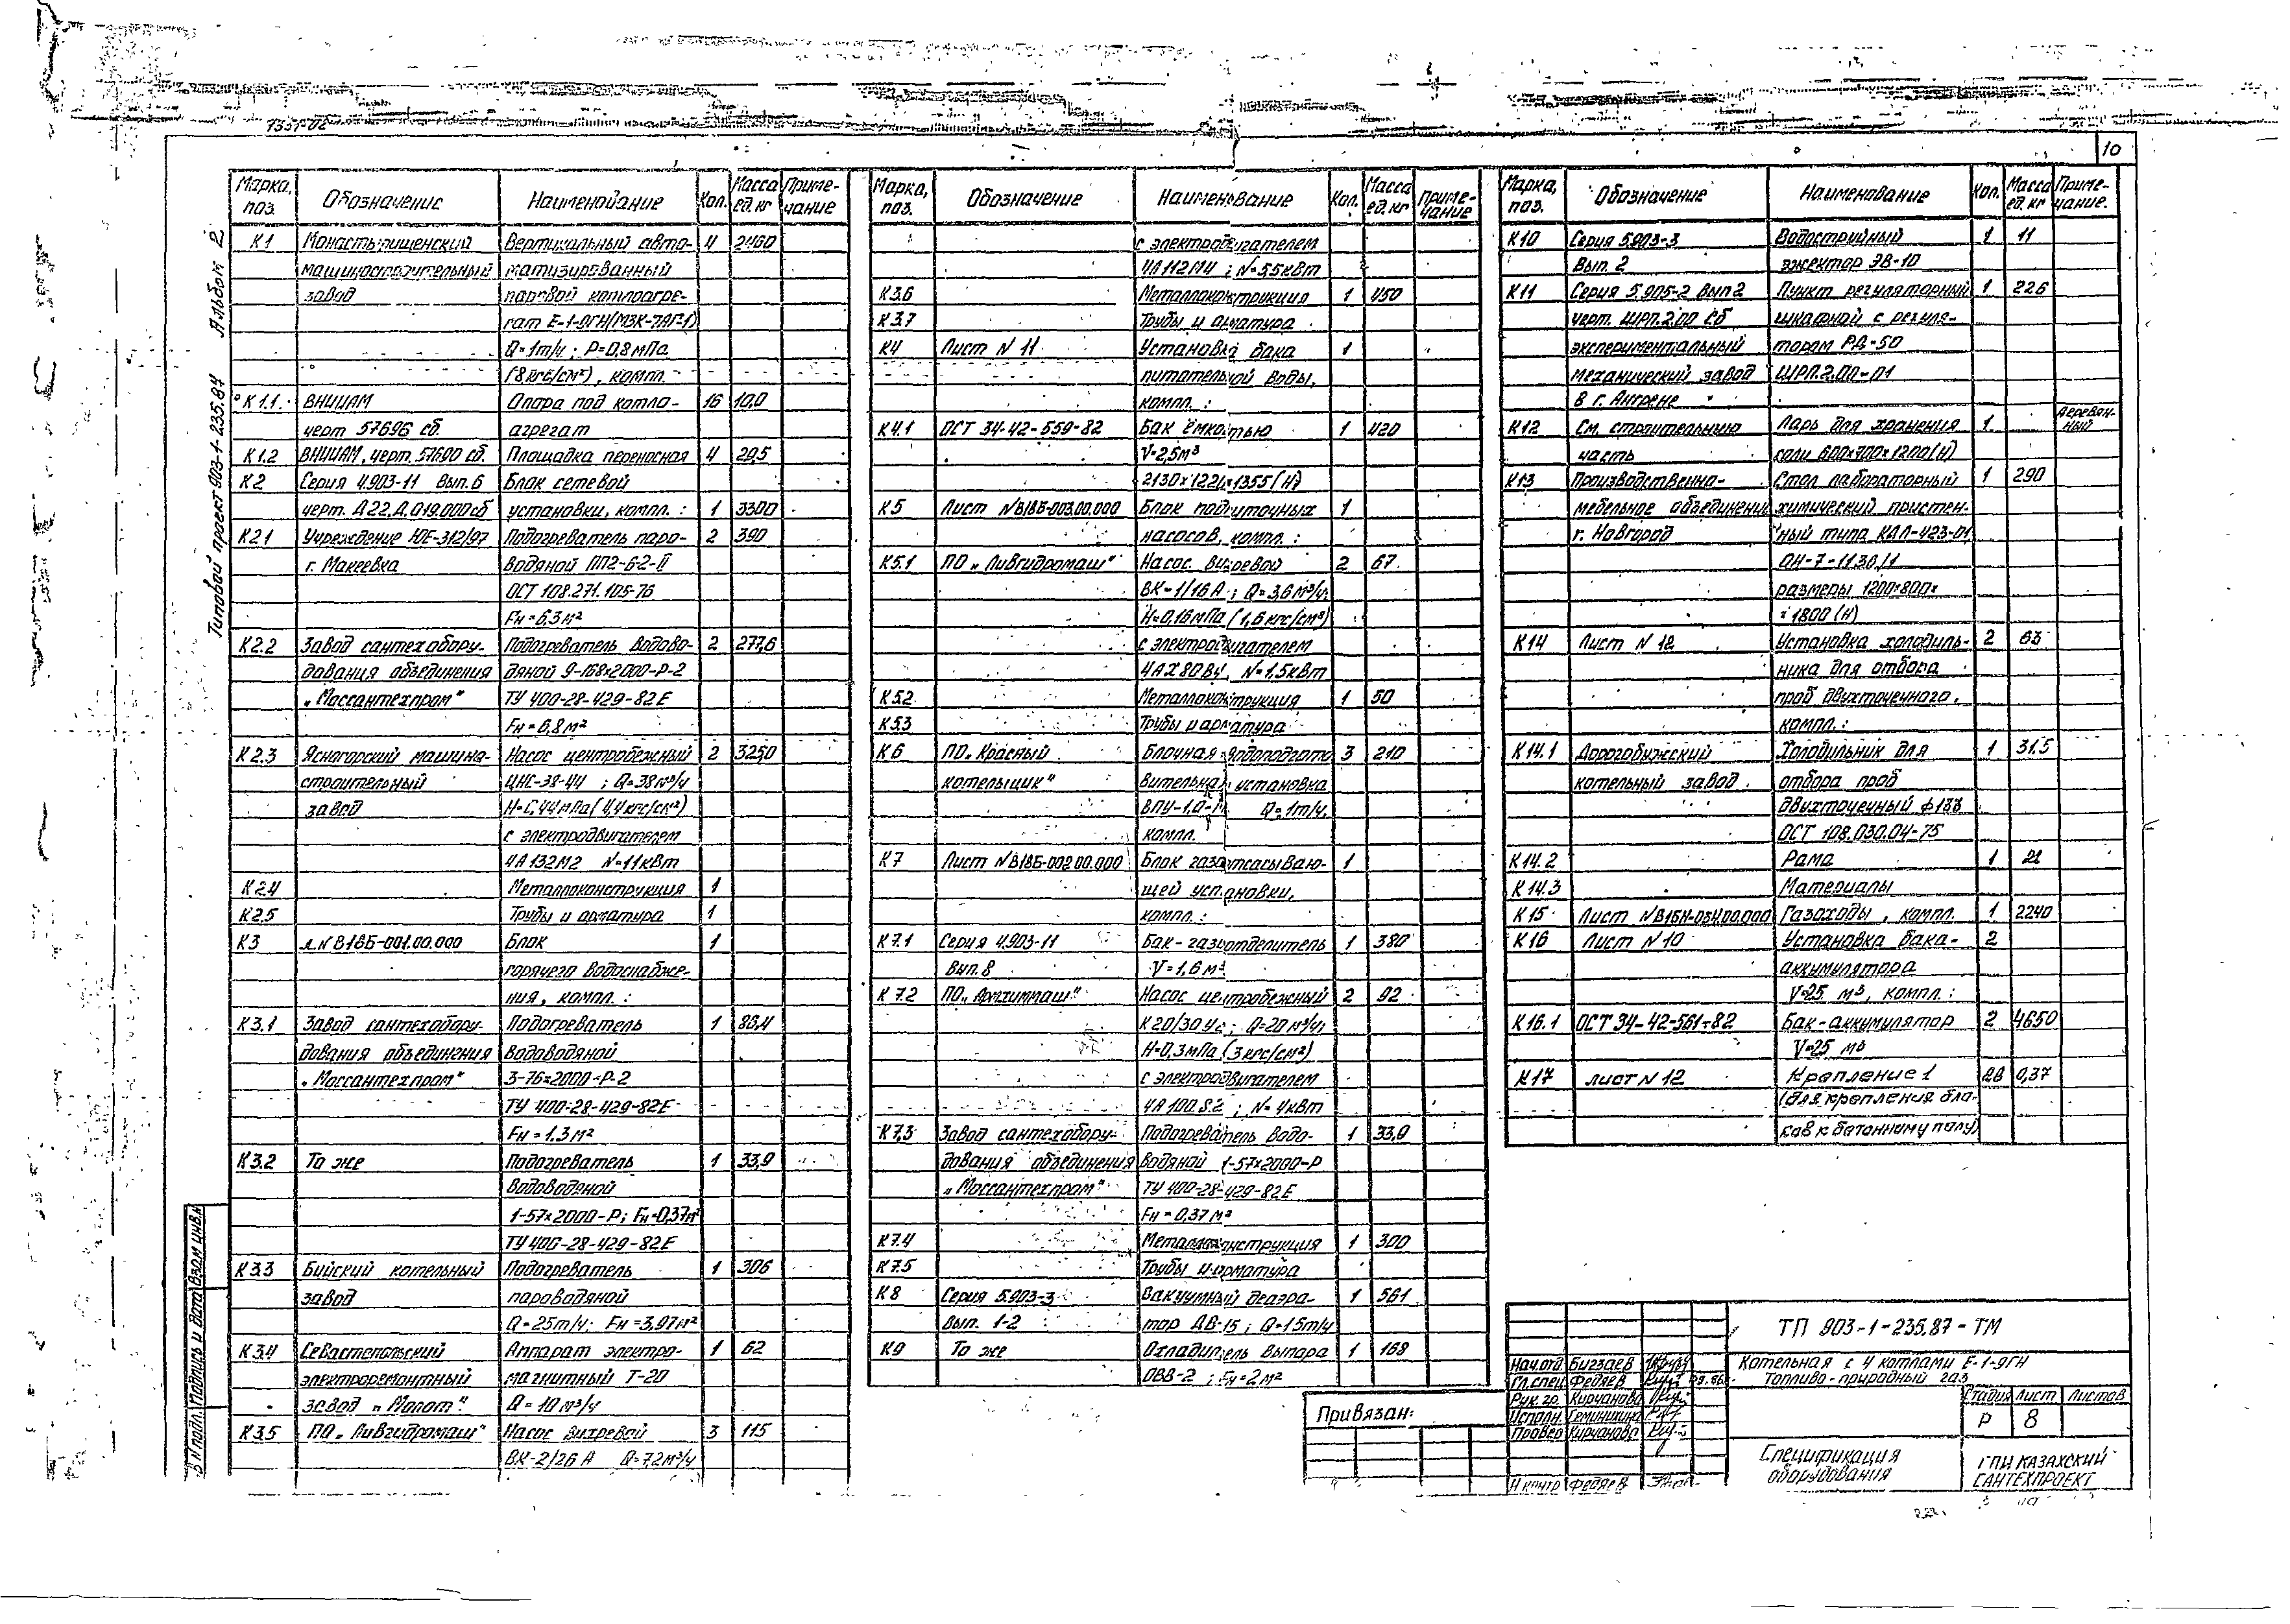 10
Альбом 2
Типовой проект 903-1-235.87
Марка, поз. Обозначение Наименование Кол. Масса ед.кг Примечание
К1 Монастырищенский Вертикальный авто- 4 2460
машиностроительный матизированный
завод паровой котлоагре-
гат Е-1-9ГН(МЗК-7АГ-1)
Q=1т/ч; P=0,8мПа
(8кгс/см²), компл.
К1.1. ВНИИАМ Опора под котло- 16 10,0
черт 57696 сб. агрегат
К1.2 ВНИИАМ, черт. 57600 сб. Площадка переносная 4 29,5
К2 Серия 4.903-11 Вып.6 Блок сетевой
черт. А22.А.019.000сб установки, компл.: 1 3300
К2.1 Учреждение ЮЕ-312/97 Подогреватель паро- 2 390
г. Макеевка водяной ПП2-6-2-II
ОСТ 108.271.105-76
Fн=6,3м²
К2.2 Завод сантехобору- Подогреватель водово- 2 277,6
дования объединения дяной 9-168х2000-Р-2
„Моссантехпром" ТУ 400-28-429-82Е
Fн=6,8м²
К2.3 Ясногорский машино- Насос центробежный 2 325,0
строительный ЦНС-38-44 ; Q=38м³/ч
завод Н=0,44мПа(4,4кгс/см²)
с электродвигателем
4А132М2 N=11кВт
К2.4 Металлоконструкция 1
К2.5 Трубы и арматура 1
К3 л.N В18Б-001.00.000 Блок 1
горячего водоснабже-
ния, компл.:
К3.1 Завод сантехобору- Подогреватель 1 86,4
дования объединения водоводяной
„Моссантехпром" 3-76х2000-Р-2
ТУ 400-28-429-82Е
Fн=1,3м²
К3.2 То же Подогреватель 1 33,9
водоводяной
1-57х2000-Р; Fн=0,37м²
ТУ 400-28-429-82Е
К3.3 Бийский котельный Подогреватель 1 306
завод пароводяной
Q=25т/ч; Fн=3,97м²
К3.4 Севастопольский Аппарат электро- 1 62
электроремонтный магнитный Т-20
завод „Молот" Q=10м³/ч
К3.5 ПО „Ливгидромаш" Насос вихревой 3 115
ВК-2/26А Q=7,2м³/ч
Марка, поз. Обозначение Наименование Кол. Масса ед.кг Примечание
с электродвигателем
4А112М4 ; N=5,5кВт
К3.6 Металлоконструкция 1 450
К3.7 Трубы и арматура
К4 Лист N 11 Установка бака 1
питательной воды,
компл.:
К4.1 ОСТ 34-42-559-82 Бак ёмкостью 1 420
V=2,5м³
2130х1221х1355(Н)
К5 Лист N В18Б-003.00.000 Блок подпиточных 1
насосов, компл.:
К5.1 ПО „Ливгидромаш" Насос вихревой 2 67
ВК-1/16А; Q=3,6м³/ч
Н=0,16мПа (1,6кгс/см²)
с электродвигателем
4АХ80В4, N=1,5кВт
К5.2 Металлоконструкция 1 50
К5.3 Трубы и арматура
К6 ПО „Красный Блочная водоподгото 3 210
котельщик" вительная установка
ВПУ-1,0-М Q=1т/ч,
компл.
К7 Лист N В18Б-002.00.000 Блок газоотсасываю- 1
щей установки,
компл.:
К7.1 Серия 4.903-11 Бак-газоотделитель 1 380
Вып.8 V=1,6м³
К7.2 ПО „Армхиммаш" Насос центробежный 2 92
К20/30 Уг; Q=20м³/ч
Н=0,3мПа (3кгс/см²)
с электродвигателем
4А100S2 ; N=4кВт
К7.3 Завод сантехобору- Подогреватель водо- 1 33,9
дования объединения водяной 1-57х2000-Р
„Моссантехпром" ТУ 400-28-429-82Е
Fн=0,37м²
К7.4 Металлоконструкция 1 300
К7.5 Трубы и арматура
К8 Серия 5.903-3 Вакуумный деаэра- 1 561
Вып. 1-2 тор ДВ-15; Q=15т/ч
К9 То же Охладитель выпора 1 168
ОВВ-2 ; Fн=2м²
Марка, поз. Обозначение Наименование Кол. Масса ед.кг Примечание.
К10 Серия 5.903-3 Водоструйный 1 11
Вып. 2 эжектор ЭВ-10
К11 Серия 5.905-2 Вып 2 Пункт регуляторный 1 226
черт. ШРП.2.00 Сб шкафной с регуля-
экспериментальный тором РД-50
механический завод ШРП.2.00-01
в г. Ангрене
К12 См. строительную Ларь для хранения 1 Деревян-ный
часть соли 600х700х1200(Н)
К13 Производственно- Стол лабораторный 1 290
мебельное объединени химический пристен-
г. Новгород ный типа КАЛ-423-01
ОН-7-1130/1
размеры 1200х800х
х1800 (Н)
К14 Лист N 12 Установка холодиль- 2 63
ника для отбора
проб двухточечного,
компл.:
К14.1 Дорогобужский Холодильник для 1 31.5
котельный завод. отбора проб
двухточечный ф133
ОСТ 108.030.04-75
К14.2 Рама 1 21
К14.3 Материалы
К15 Лист N В16Н-034.00.000 Газоходы, компл. 1 2240
К16 Лист N 10 Установка бака- 2
аккумулятора
V=25 м³, компл.:
К16.1 ОСТ 34-42-561-82 Бак-аккумулятор 2 4650
V=25 м³
К17 лист N 12 Крепление 1 28 0,37
(для крепления бло-
ков к бетонному полу)
ТП 903-1-235.87-ТМ
Котельная с 4 котлами Е-1-9ГН
Топливо-природный газ
Нач.отд.
Гл.спец Федяев
Рук.гр. Кирчанова
Исполн.
Провер Кирчанова
Н контр Федяев
Стадия Лист Листов
Р 8
Спецификация оборудования
ГПИ КАЗАХСКИЙ САНТЕХПРОЕКТ
Привязан:
Подпись и дата
Взам инв.N